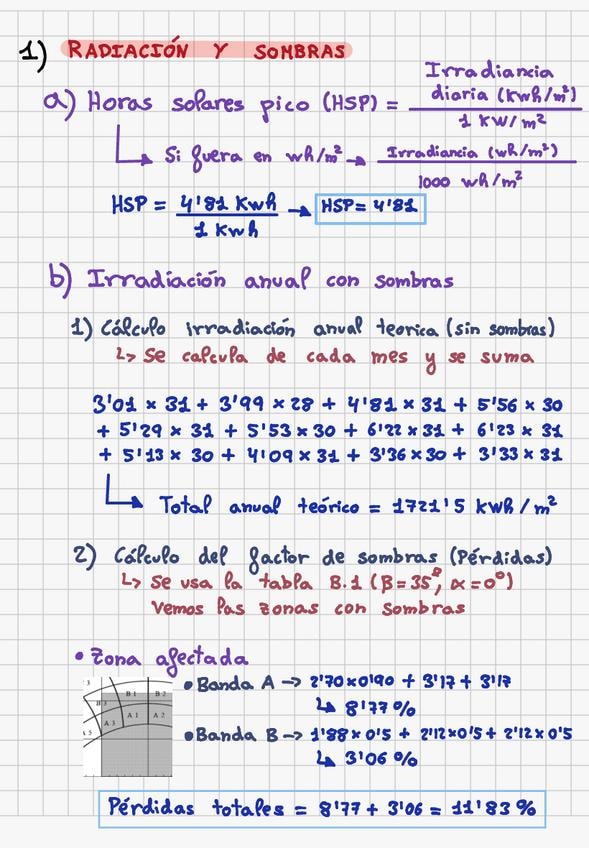 1) RADIACIÓN Y SOMBRAS
a) Horas solares pico (HSP) = Irradiancia diaria (Kwh/m²)
1 KW/m²
Si fuera en wh/m² → Irradiancia (wh/m²)
1000 wh/m²
HSP = 4'81 Kwh → HSP = 4'81
1 Kwh
b) Irradiación anual con sombras
1) Cálculo irradiación anual teorica (sin sombras)
↳ Se calcula de cada mes y se suma
3'01 x 31 + 3'99 x 28 + 4'81 x 31 + 5'56 x 30
+ 5'29 x 31 + 5'53 x 30 + 6'22 x 31 + 6'23 x 31
+ 5'13 x 30 + 4'09 x 31 + 3'36 x 30 + 3'33 x 31
Total anual teórico = 1721'5 kwh/m²
2) Cálculo del factor de sombras (Pérdidas)
↳ Se usa la tabla B.1 (B=35º, α=0º)
Vemos las zonas con sombras
• Zona afectada
B 1 B 2
B 3
A 3 A 1 A 2
• Banda A → 2'70x0'90 + 3'17 + 3'17
↳ 8'77 %
• Banda B → 1'88 x 0'5 + 2'12x0'5 + 2'12 x 0'5
↳ 3'06 %
Pérdidas totales = 8'77 + 3'06 = 11'83 %